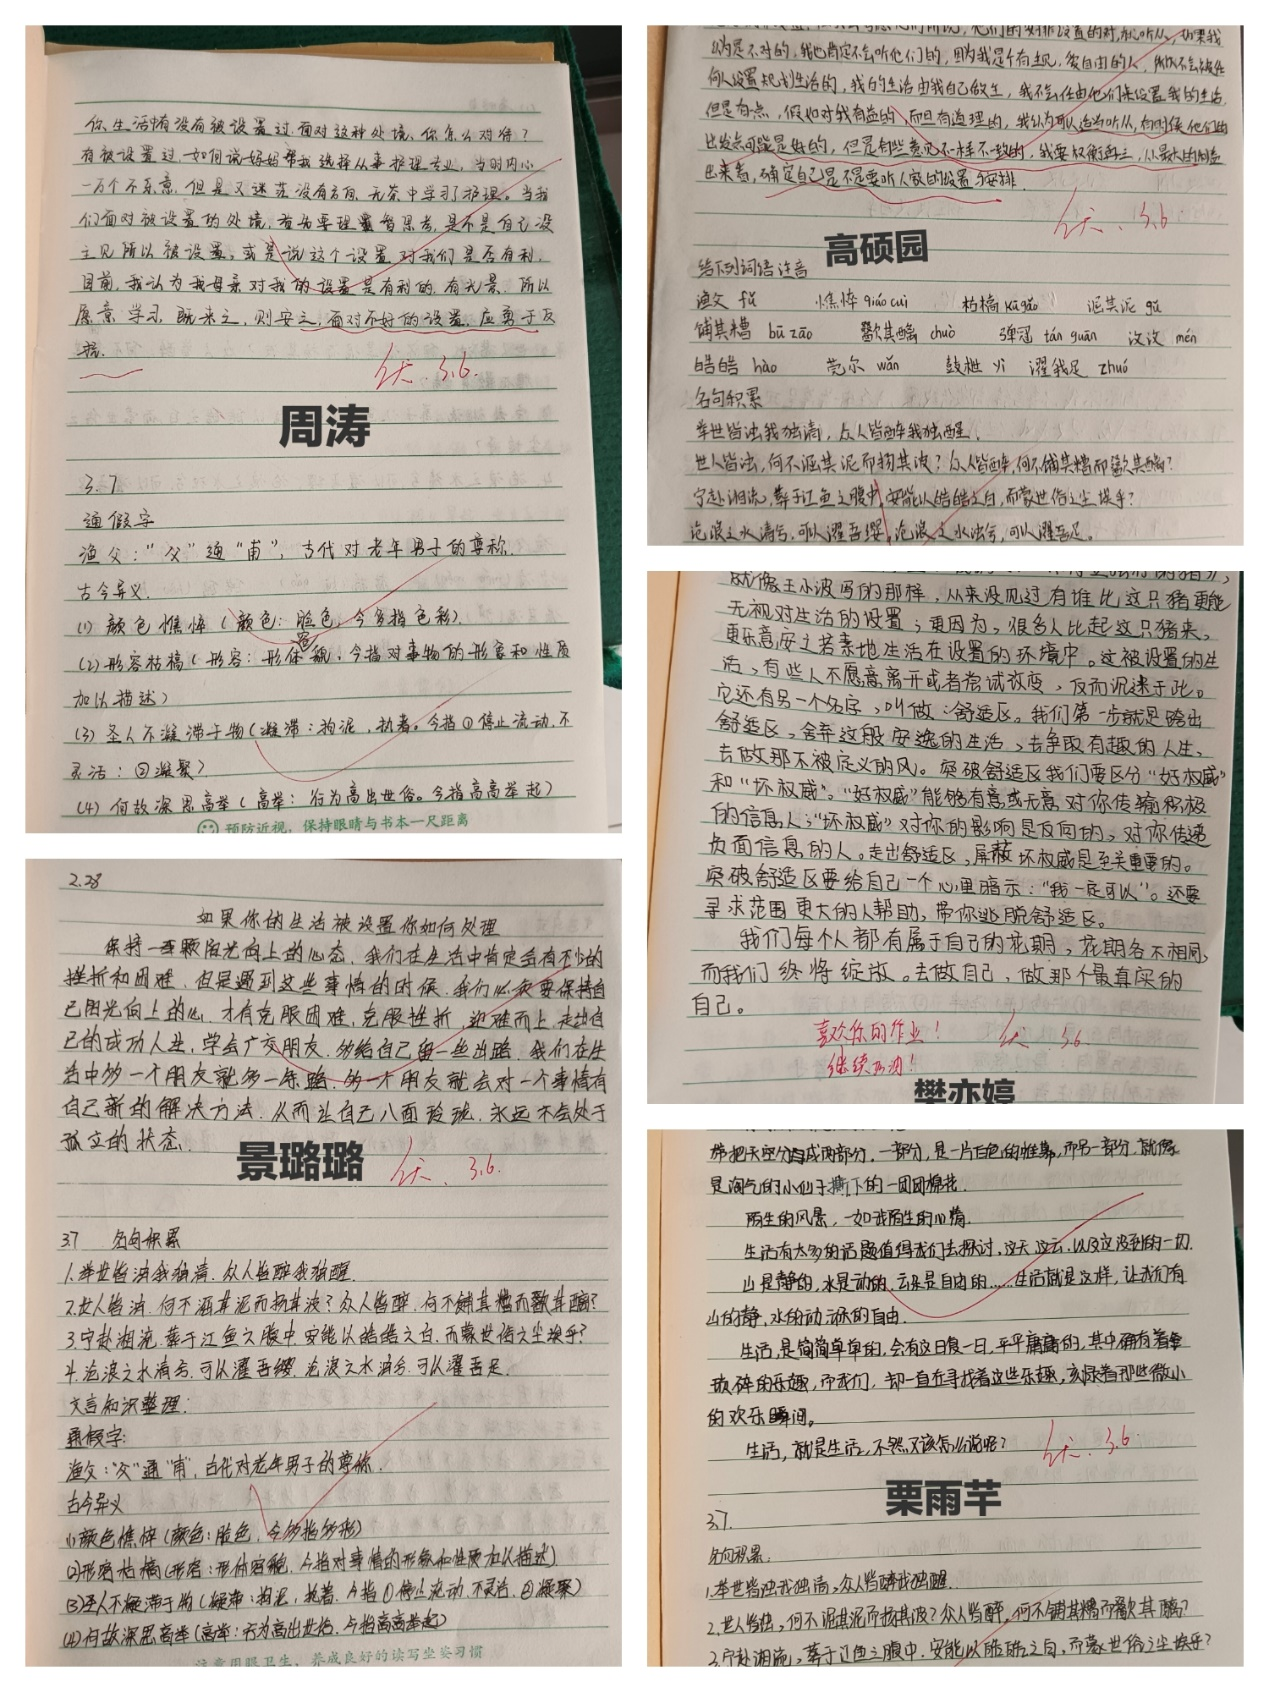 你生活有没有被设置过,面对这种处境,你怎么对待?
有被设置过,如何说妈妈帮我选择从事护理专业,当时内心
一万个不乐意,但是又迷茫没有方向,无奈中学习了护理。当我
们面对被设置的处境,首先要理量智思考,是不是自己没
主见所以被设置,或是说这个设置对我们是否有利.
目前,我认为我母亲对我的设置是有利的,有光景,所以
愿意学习,既来之,则安之,面对不好的设置,应勇于反
抗.
优 3.6.
周涛
3.7
通假字
渔父:“父”通“甫”,古代对老年男子的尊称.
古今异义.
(1)颜色憔悴(颜色:脸色,今多指色彩)
(2)形容枯槁(形容:形体容貌,今指对事物的形象和性质
加以描述)
(3)圣人不凝滞于物(凝滞:拘泥,执着。今指①停止流动,不
灵活;②凝聚)
(4)何故深思高举(高举:行为高出世俗。今指高高举起)
预防近视,保持眼睛与书本一尺距离
2.28
如果你的生活被设置你如何处理
保持一颗阳光向上的心态,我们在生活中肯定会有不少的
挫折和困难,但是遇到这些事情的时候,我们必要保持自
己阳光向上的心,才有克服困难,克服挫折,迎难而上,走出自
己的成功人生,学会广交朋友,多给自己留一些出路,我们在生
活中多一个朋友就多一条路,多一个朋友就会对一个事情有
自己新的解决方法,从而让自己八面玲珑,永远不会处于
孤立的状态.
景璐璐
优 3.6.
3.7 名句积累
1.举世皆浊我独清,众人皆醉我独醒.
2.世人皆浊,何不淈其泥而扬其波?众人皆醉,何不餔其糟而歠其醨?
3.宁赴湘流,葬于江鱼之腹中,安能以皓皓之白,而蒙世俗之尘埃乎?
4.沧浪之水清兮,可以濯吾缨,沧浪之水浊兮,可以濯吾足.
文言知识整理:
通假字:
渔父:“父”通“甫”,古代对老年男子的尊称.
古今异义
(1)颜色憔悴(颜色:脸色,今多指色彩)
(2)形容枯槁(形容:形体容貌,今指对事情的形象和性质加以描述)
(3)圣人不凝滞于物(凝滞:拘泥,执着,今指①停止流动,不灵活,②凝聚)
(4)何故深思高举(高举:行为高出世俗,今指高高举起)
注意用眼卫生,养成良好的读写坐姿习惯
他们的安排设置的对,我听从,如果我
认为是不对的,我也肯定不会听他们的,因为我是个有主见,爱自由的人,所以不会被任
何人设置规划生活的,我的生活由我自己做主,我不会任由他们来设置我的生活.
但是有点,假如对我有益的,而且有道理的,我认为可以适当听从,有时候他们的
出发点可能是好的,但是有些意见不一样不一致的,我要权衡再三,从最大的利益
出来看,确定自己是不是要听人家的设置与安排.
优 3.6
高硕园
给下列词语注音
渔父 fǔ 憔悴 qiáo cuì 枯槁 kū gǎo 淈其泥 gǔ
餔其糟 bū zāo 歠其醨 chuò 弹冠 tán guān 汶汶 mén
皓皓 hào 莞尔 wǎn 鼓枻 yì 濯我足 zhuó
名句积累
举世皆浊我独清,众人皆醉我独醒.
世人皆浊,何不淈其泥而扬其波?众人皆醉,何不餔其糟而歠其醨?
宁赴湘流,葬于江鱼之腹中,安能以皓皓之白,而蒙世俗之尘埃乎?
沧浪之水清兮,可以濯吾缨,沧浪之水浊兮,可以濯吾足。
就像王小波写的那样,从来没见过有谁比这只猪更能
无视对生活的设置;更因为,很多人比起这只猪来,
更乐意安之若素地生活在设置的环境中。这被设置的生
活,有些人不愿意离开或者尝试改变,反而沉迷于此。
它还有另一个名字,叫做:舒适区。我们第一步就是跨出
舒适区,舍弃这般安逸的生活,去争取有趣的人生,
去做那不被定义的风。突破舒适区我们要区分“好权威”
和“坏权威”。“好权威”能够有意或无意对你传输积极
的信息人;“坏权威”对你的影响是反向的,对你传递
负面信息的人。走出舒适区,屏蔽坏权威是至关重要的。
突破舒适区要给自己一个心里暗示:“我一定可以”。还要
寻求范围更大的人帮助,带你逃脱舒适区。
我们每个人都有属于自己的花期,花期各不相同,
而我们终将绽放。去做自己,做那个最真实的
自己。
喜欢你的作业! 优 3.6
继续加油!
樊亦婷
带把天空分成两部分,一部分,是一片白色的帷幕,而另一部分,就像
是淘气的小仙子撕下的一团团棉花.
陌生的风景,一如我陌生的心情.
生活有太多的话题值得我们去探讨,这天这云,以及这波到的一切.
山是静的,水是动的,云是自由的……生活就是这样,让我们有
山的静,水的动,云的自由.
生活,是简简单单的,会有这日复一日,平平庸庸的,其中确有着些
琐碎的乐趣,而我们,却一直在寻找着这些乐趣,亥录着那些微小
的欢乐瞬间。
生活,就是生活,不然又该怎么说呢?
优 3.6.
栗雨芊
3.7.
名句积累.
1.举世皆浊我独清,众人皆醉我独醒.
2.世人皆浊,何不淈其泥而扬其波?众人皆醉,何不餔其糟而歠其醨?
3.宁赴湘流,葬于江鱼之腹中,安能以皓皓之白,而蒙世俗之尘埃乎?